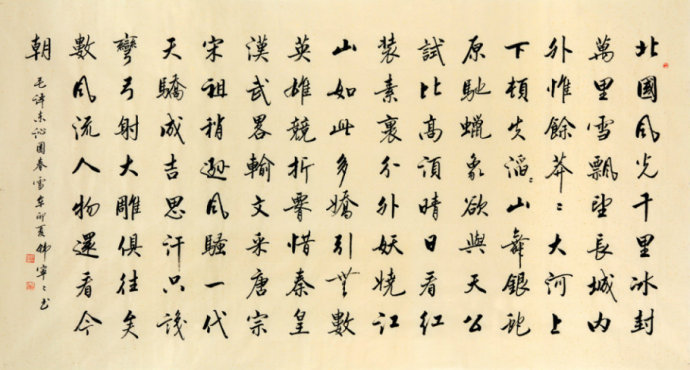 北國风光千里冰封
萬里雪飄望長城内
外惟餘莽〻大河上
下頓失滔〻山舞銀蛇
原馳蠟象欲與天公
試比高須晴日看紅
装素裹分外妖嬈江
山如此多嬌引無數
英雄競折腰惜秦皇
漢武畧輸文采唐宗
宋祖稍遜风騷一代
天驕成吉思汗只識
彎弓射大雕俱往矣
數风流人物還看今
朝
毛泽东沁園春雪辛卯夏